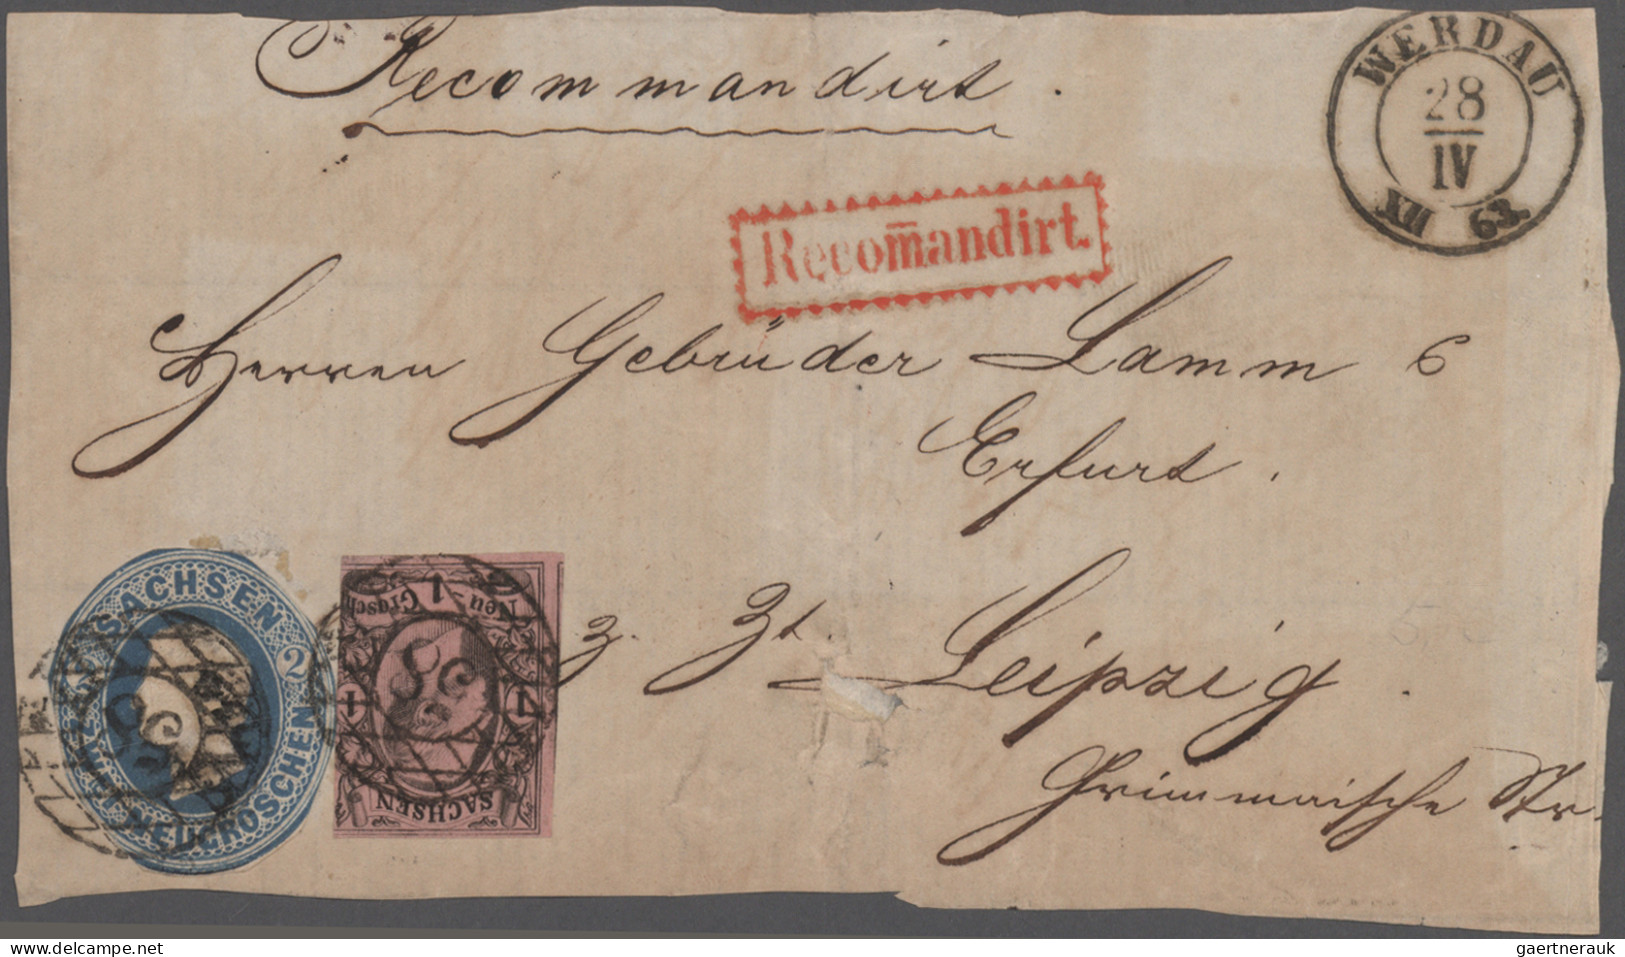 Recommandirt.
WERDAU
28
IV
XII 63.
Recom̅andirt.
Herren Gebrüder Lamm
Erfurt.
z. Zt. Leipzig.
Grimmaische Str.
SACHSEN
2
NEUGROSCHEN
1
Neu-Grosch
1 1
SACHSEN
delcampe.net
gaertnerauk